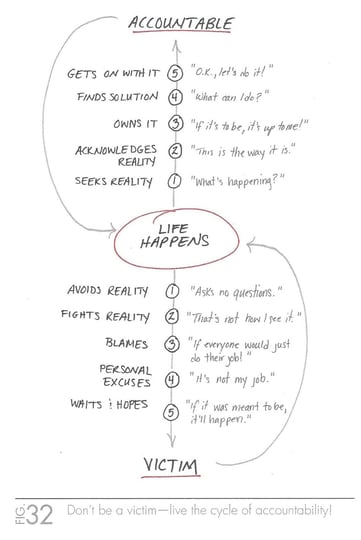 ACCOUNTABLE
GETS ON WITH IT 5 "O.K., let's do it!"
FINDS SOLUTION 4 "What can I do?"
OWNS IT 3 "If it's to be, it's up to me!"
ACKNOWLEDGES
REALITY 2 "This is the way it is."
SEEKS REALITY 1 "What's happening?"
LIFE
HAPPENS
AVOIDS REALITY 1 "Asks no questions."
FIGHTS REALITY 2 "That's not how I see it."
BLAMES 3 "If everyone would just
do their job!"
PERSONAL
EXCUSES 4 "It's not my job."
WAITS & HOPES 5 "If it was meant to be,
it'll happen."
VICTIM
FIG. 32 Don't be a victim—live the cycle of accountability!